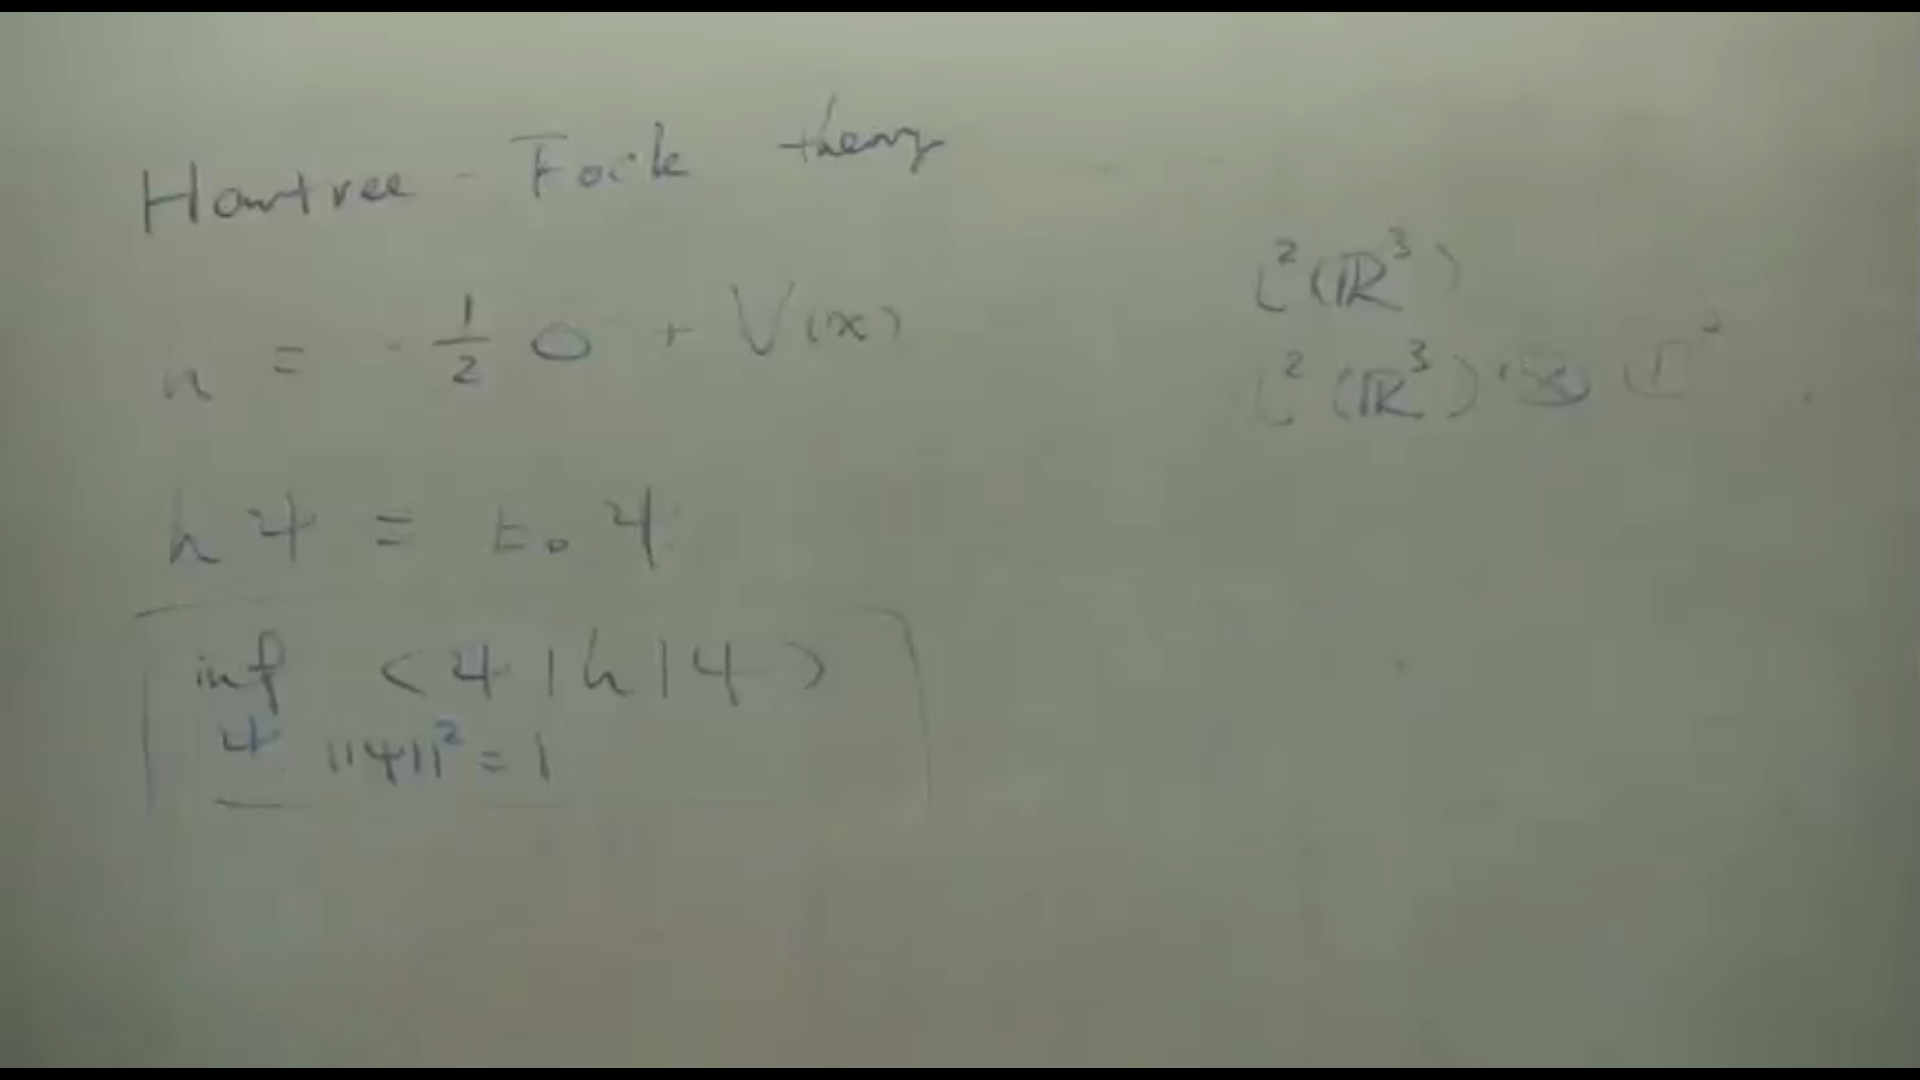 Hartree - Fock theory
h = - 1/2 Δ + V(x)
h ψ = E₀ ψ
inf <ψ|h|ψ>
ψ ||ψ||² = 1
L²(ℝ³)
L²(ℝ³) ⊗ ℂ²